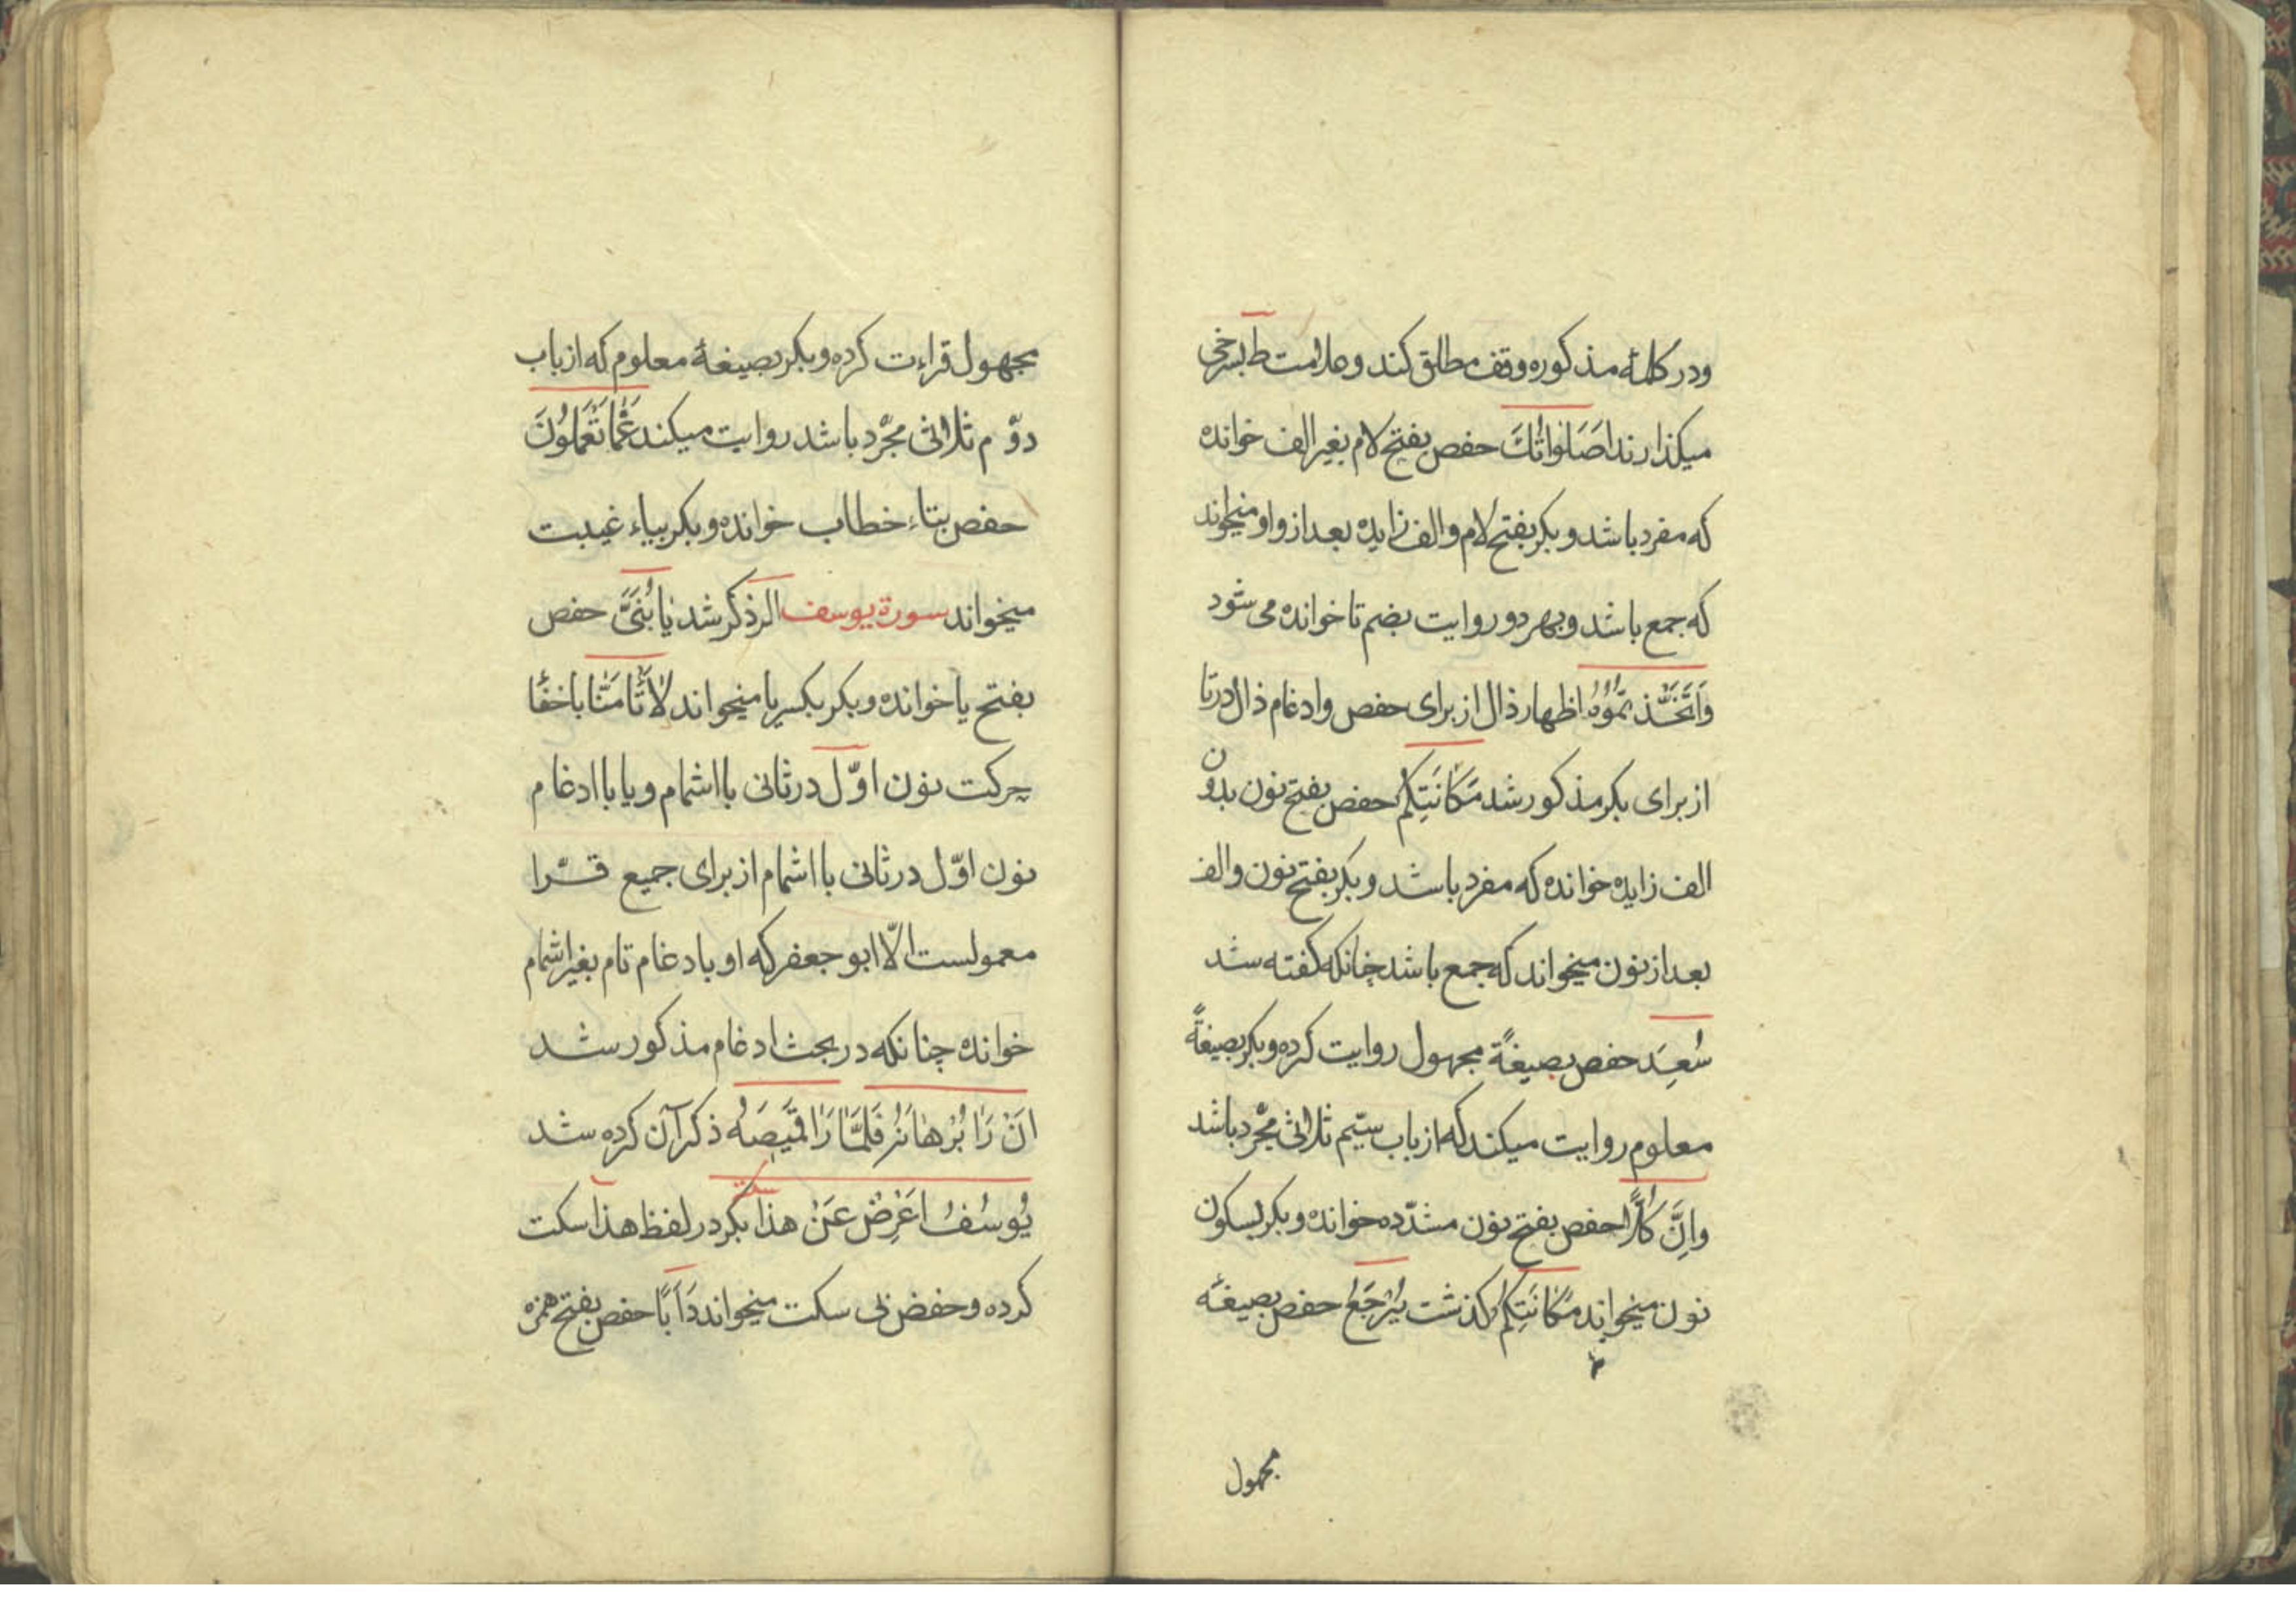 ودر کلمهٔ مذکوره وقف مطلق کند وعلامت ط بسرخی
میکذارند اَصَلَواتُكَ حفص بفتح لام بغیر الف خوانده
که مفرد باشد و بکر بفتح لام و الف زایده بعد از واو میخواند
که جمع باشد و بهر دو روایت بضم تا خوانده می شود
وَاتَّخَذْتُمُوُهُ اظهار ذال از برای حفص وادغام ذال در تا
از برای بکر مذکور شد مَکَانَتِکُمْ حفص بفتح نون بدون
الف زایده خوانده که مفرد باشد و بکر بفتح نون والف
بعد از نون میخواند که جمع باشد چنانکه کفته شد
سُعِدَ حفص بصیغهٔ مجهول روایت کرده وبکر بصیغهٔ
معلوم روایت میکند که از باب سیّم ثلاثی مجّرد باشد
وَاِنَّ کُلًّا حفص بفتح نون مشدّده خوانده وبکر بسکون
نون میخواند مَکَانَتِکُمْ کذشت یُرْجَعُ حفص بصیغهٔ
مجهول
مجهول قراءت کرده وبکر بصیغهٔ معلوم که از باب
دوّم ثلاثی مجّرد باشد روایت میکند عَمَّا تَعْمَلُونَ
حفص بتاء خطاب خوانده وبکر بیاء غیبت
میخواند سورة یوسف الر ذکر شد یَا بُنَیَّ حفص
بفتح یا خوانده وبکر بکسر یا میخواند لَاتَأْمَنَّا با اخفا
حرکت نون اوّل در ثانی با اشمام ویا با ادغام
نون اوّل در ثانی با اشمام از برای جمیع قرّا
معمولست الّا ابو جعفر که او با دغام تام بغیر اشمام
خوانده چنانکه در بحث ادغام مذکور شد
اَنْ رَا بُرْهَانَ فَلَمَّا رَا قَمِیصَهُ ذکر آن کرده شد
یُوسُفُ اَعْرِضْ عَنْ هذا بکر در لفظ هذا سکت
کرده وحفض بی سکت میخواند دَاَبًا حفص بفتح همزه